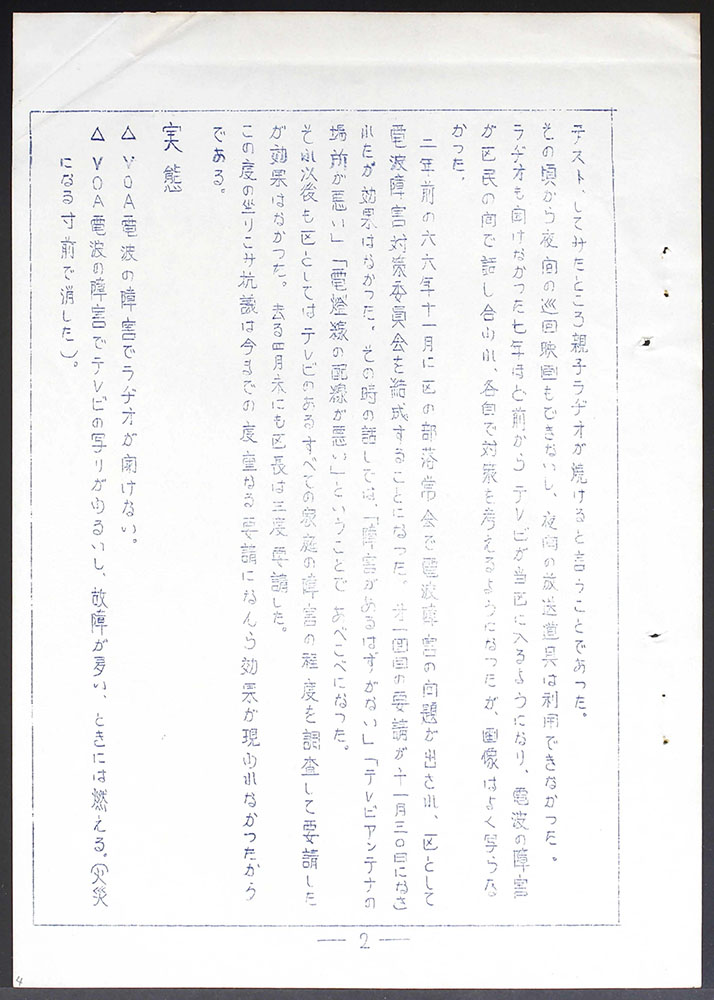 テスト、してみたところ親子ラヂオが焼けると言うことであった。
その頃から夜間の巡回映画もできないし、夜間の放送道具は利用できなかった。
ラヂオも聞けなかった七年ほど前からテレビが当区に入るようになり、電波の障害
が区民の間で話し合われ、各自で対策を考えるようになつたが、画像はよく写らな
かった。
二年前の六六年十一月に区の部落常会で電波障害の問題が出され、区として
電波障害対策委員会を結成することになった。才一回目の要請が十一月三〇日になさ
れたが効果はなかった。その時の話しでは、「障害があるはずがない」「テレビアンテナの
場所が悪い」「電燈線の配線が悪い」ということで あべこべになった。
それ以後も区としてはテレビのあるすべての家庭の障害の程度を調査して要請した
が効果はなかつた。去る四月末にも区長は三度要請した。
この度の坐りこみ抗議は今までの度重なる要請になんら効果が現われなかつたから
である。
実態
△ VOA電波の障害でラヂオが聞けない。
△ VOA電波の障害でテレビの写りがわるいし、故障が多い、ときには燃える。(火災
になる寸前で消した)。
— 2 —
4